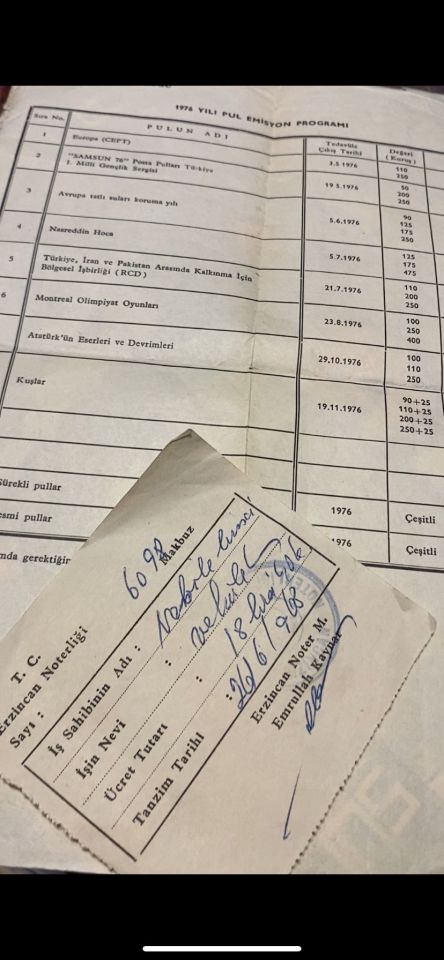 1976 YILI PUL EMİSYON PROGRAMI
Sıra No. PULUN ADI Tedavüle Çıkış Tarihi Değeri (Kuruş)
1 Europa (CEPT) 3.5.1976 110
250
2 "SAMSUN 76" Posta Pulları Türkiye 19.5.1976 50
1. Milli Gençlik Sergisi 200
250
3 Avrupa tatlı suları koruma yılı 5.6.1976 90
125
175
250
4 Nasreddin Hoca 5.7.1976 125
175
475
5 Türkiye, İran ve Pakistan Arasında Kalkınma İçin 21.7.1976 110
Bölgesel İşbirliği (RCD) 200
250
6 Montreal Olimpiyat Oyunları 23.8.1976 100
250
400
Atatürk'ün Eserleri ve Devrimleri 29.10.1976 100
110
250
Kuşlar 19.11.1976 90+25
110+25
200+25
250+25
Sürekli pullar 1976 Çeşitli
esmi pullar 1976 Çeşitli
nda gerektiğin
T. C.
Erzincan Noterliği
Sayı : 6098 Makbuz
İş Sahibinin Adı :
İşin Nevi :
Ücret Tutarı : 18
Tanzim Tarihi : 26/6/968
Erzincan Noter M.
Emrullah Kaynar